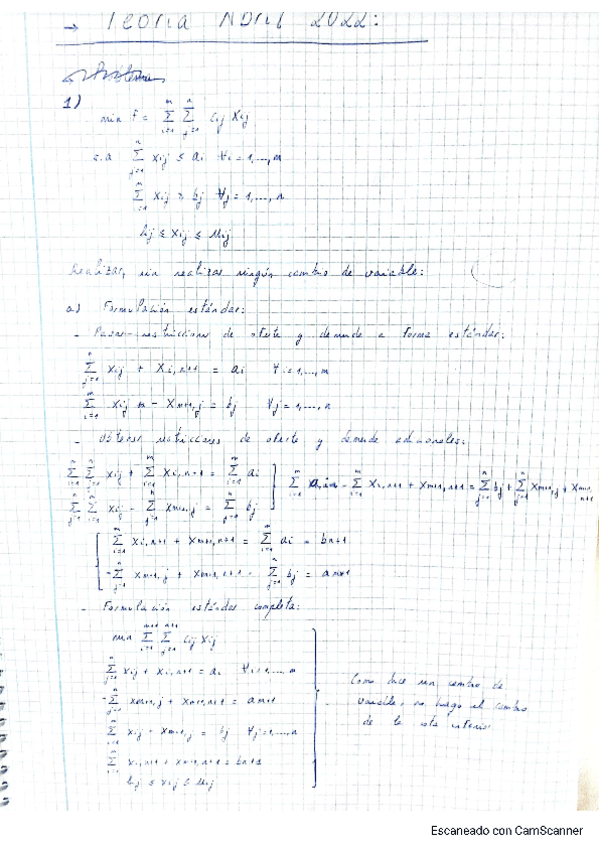 → Teoria Abril 2022:
1)
min f = Σ_{i=1}^{m} Σ_{j=1}^{n} cij Xij
s.a Σ_{j=1}^{n} xij ≤ ai ∀i = 1,...,m
Σ_{i=1}^{m} xij ≥ bj ∀j = 1,...,n
lij ≤ xij ≤ Mij
Realizar, sin realizar ningún cambio de variable:
a) Formulación estándar:
- Pasar restricciones de oferta y demanda a forma estándar:
Σ_{j=1}^{n} xij + xi,n+1 = ai ∀i=1,...,m
Σ_{i=1}^{m} xij - xm+1,j = bj ∀j=1,...,n
- Obtener restricciones de oferta y demanda adicionales:
Σ_{i=1}^{m} Σ_{j=1}^{n} xij + Σ_{i=1}^{m} xi,n+1 = Σ_{i=1}^{m} ai
Σ Σ xij - Σ_{j=1}^{n} xm+1,j = Σ_{j=1}^{n} bj
Σ_{i=1}^{m} xi,n+1 + xm+1,n+1 = Σ_{i=1}^{m} ai = bn+1
-Σ_{j=1}^{n} xm+1,j + xm+1,n+1 = Σ_{j=1}^{n} bj = am+1
- Formulación estándar completa:
min Σ_{i=1}^{m+1} Σ_{j=1}^{n+1} cij xij
Σ_{j=1}^{n} xij + xi,n+1 = ai ∀i=1,...,m
-Σ_{j=1}^{n} xm+1,j + xm+1,n+1 = am+1
Σ_{i=1}^{m} xij - xm+1,j = bj ∀j=1,...,n
Σ_{i=1}^{m} xi,n+1 + xm+1,n+1 = bn+1
lij ≤ xij ≤ Mij
Como hice un cambio de
variable, no hago el cambio
de la cota inferior
Escaneado con CamScanner